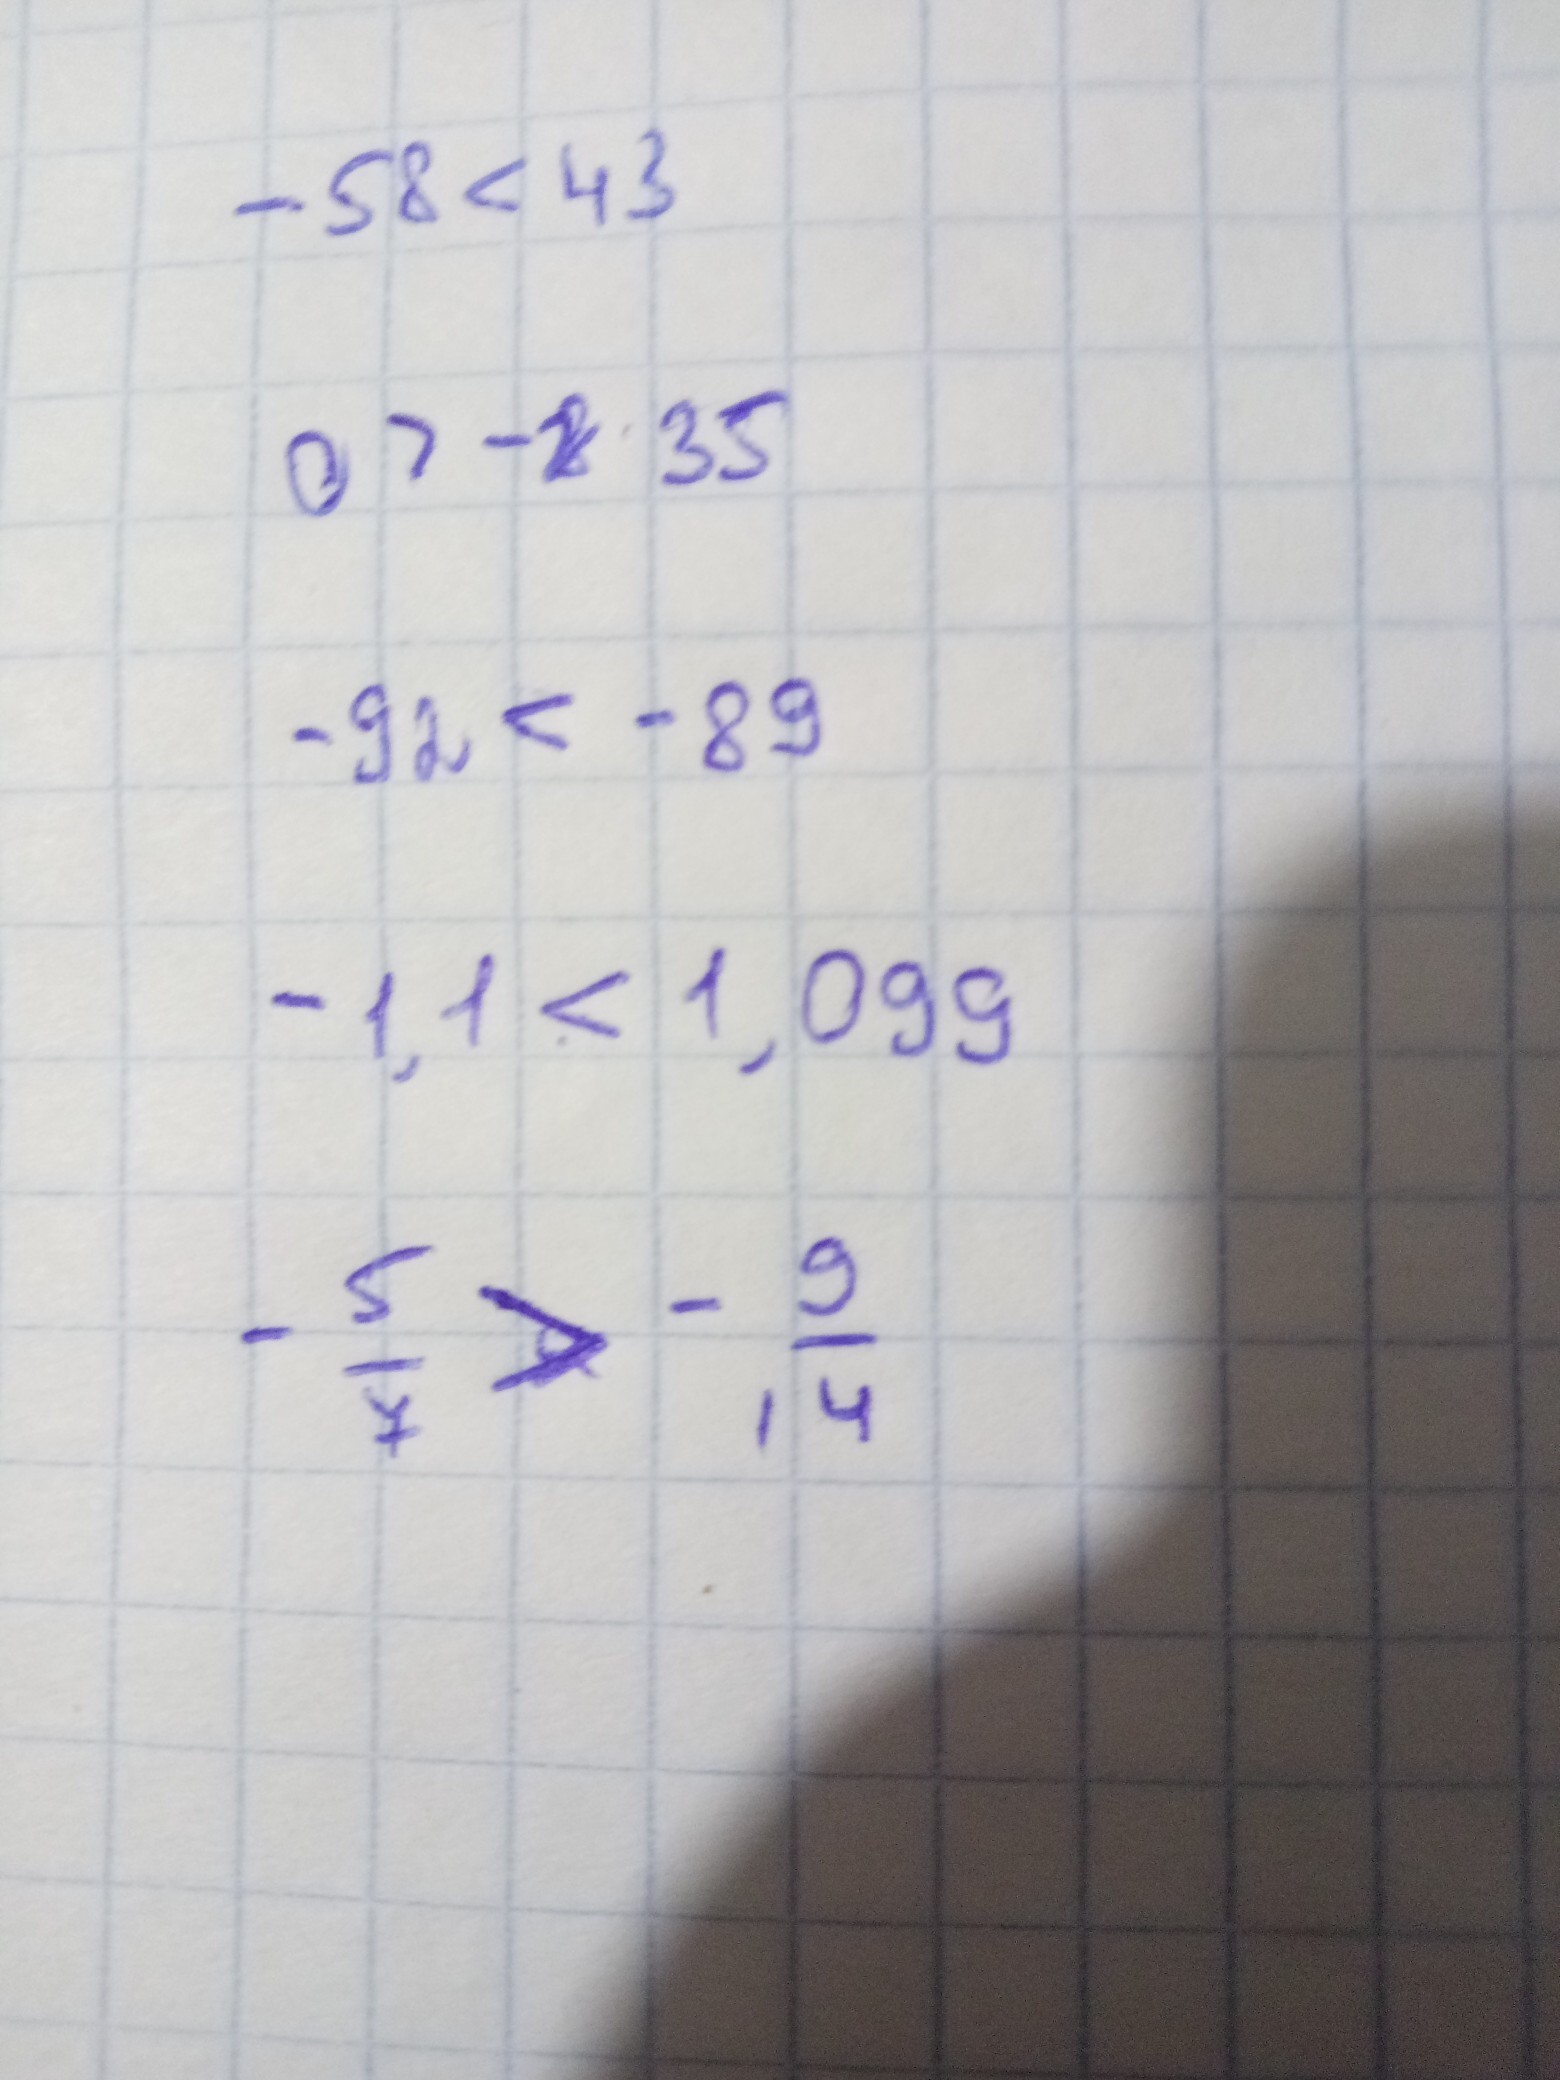 -58 < 43
0 > -35
-92 < -89
-1,1 < 1,099
- 5/7 > - 9/14